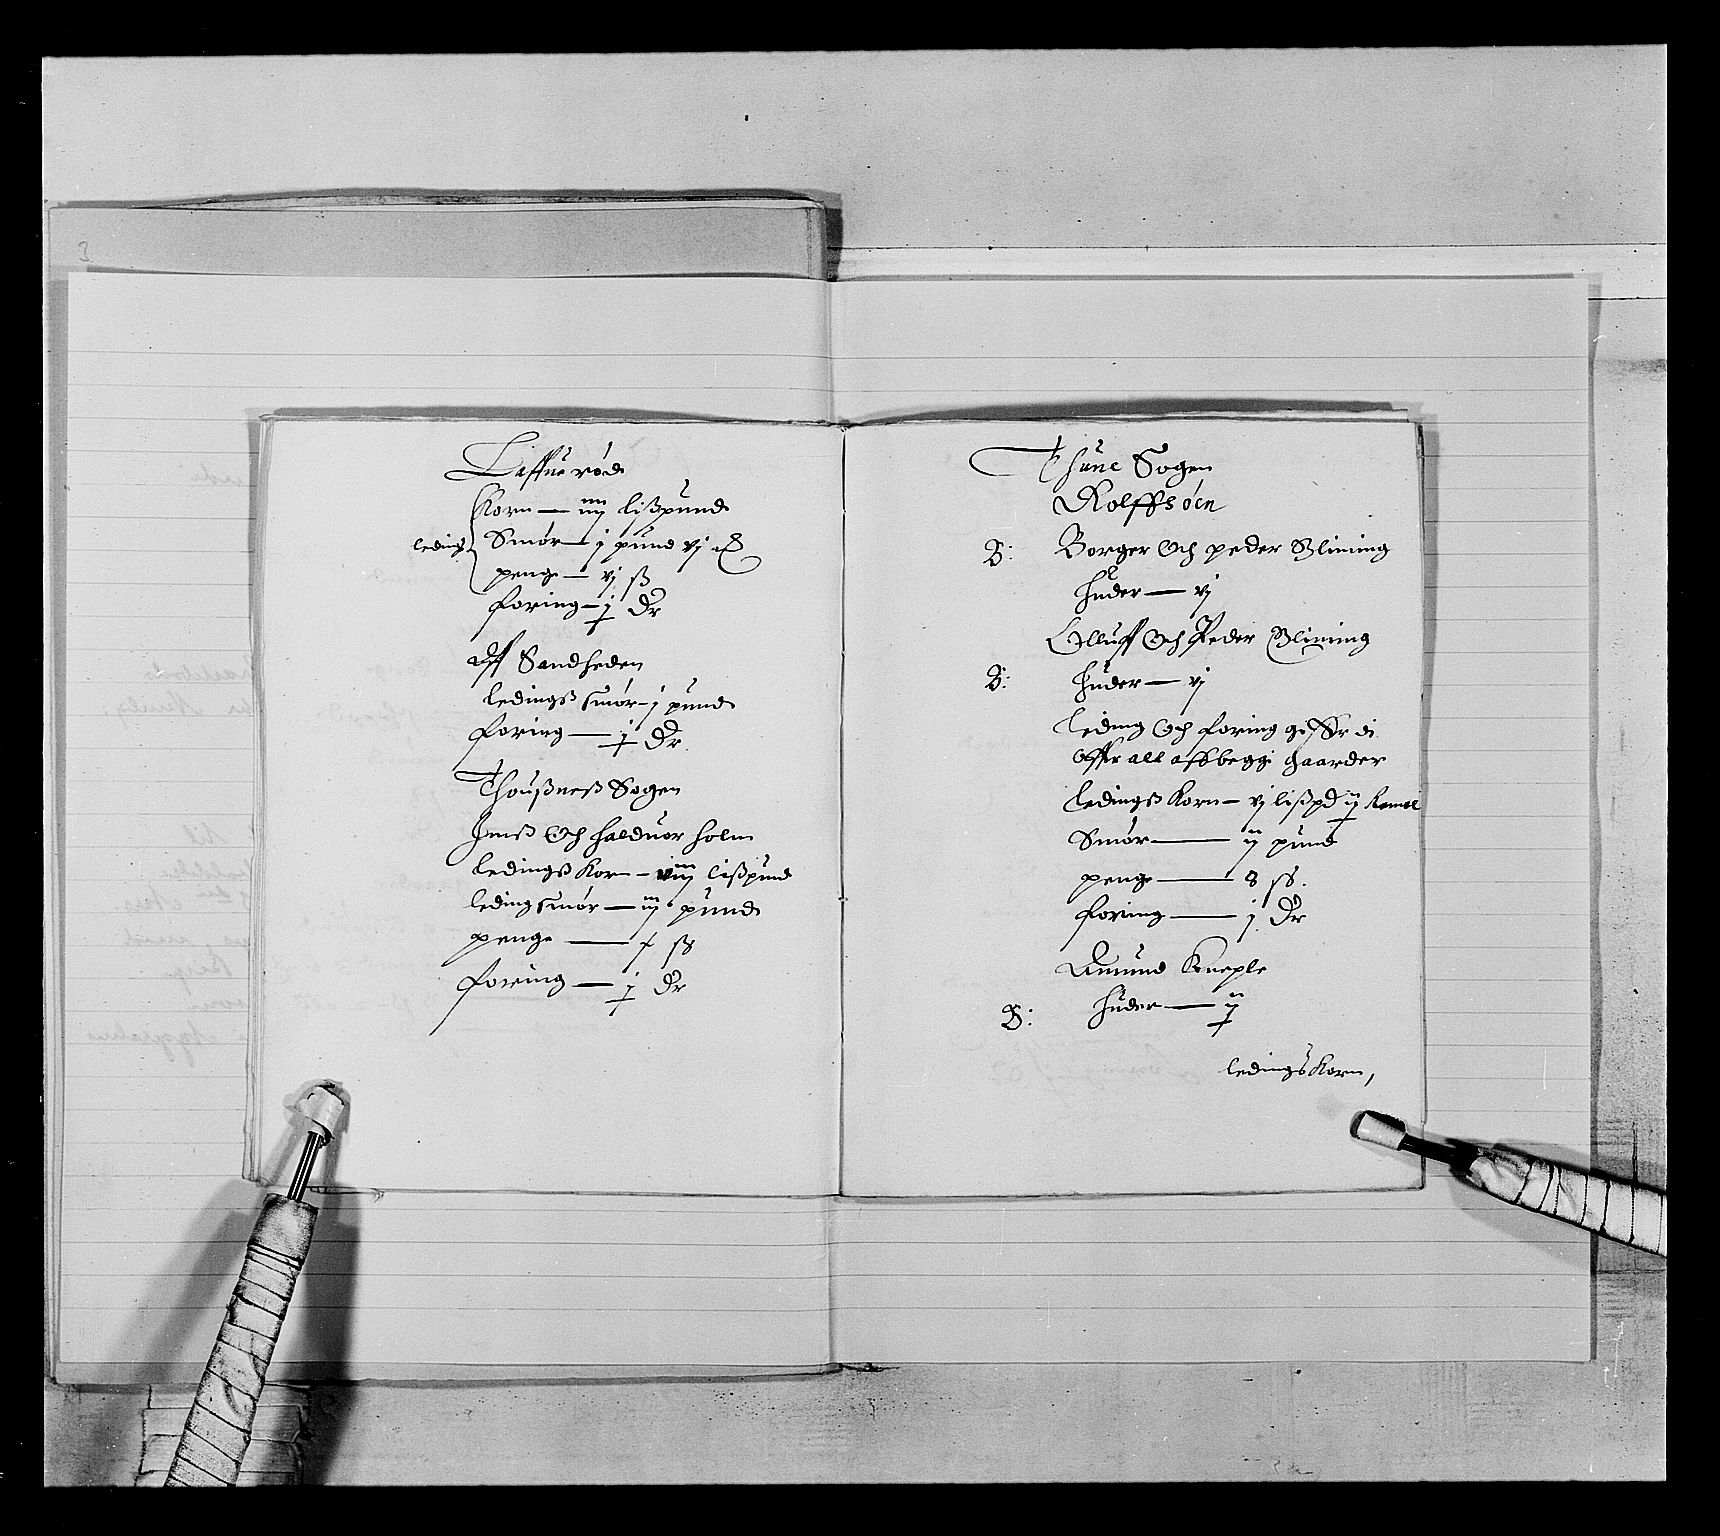 Laffue rød
Korn — iiij lißpund
ledings Smør — j pund vj
penge — vj ß
foring — j Dr
Aff Sandheden
ledingß smør — j pund
foring — j Dr
Thoußneß Sogen
Jenß Och halduor holm
ledingß Korn — viiij lißpund
leding smør — iij pund
penge — ß
foring — j Dr
Thune Sogen
Rolffsøen
B: Borger Och peder Blining
huder — vj
Olluff Och Peder Blining
B: huder — vj
Leding Och foring giffer di
effter all aff begge gaarder
Ledingß Korn — vj lißpd ij
Smør — ij pund
penge — 8 ß.
foring — j Dr
Amund Kneple
B: huder — ij
ledings Korn,
3